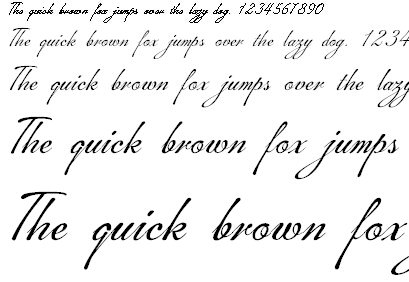 The quick brown fox jumps over the lazy dog. 1234567890
The quick brown fox jumps over the lazy dog. 1234
The quick brown fox jumps over the lazy
The quick brown fox jumps
The quick brown fox